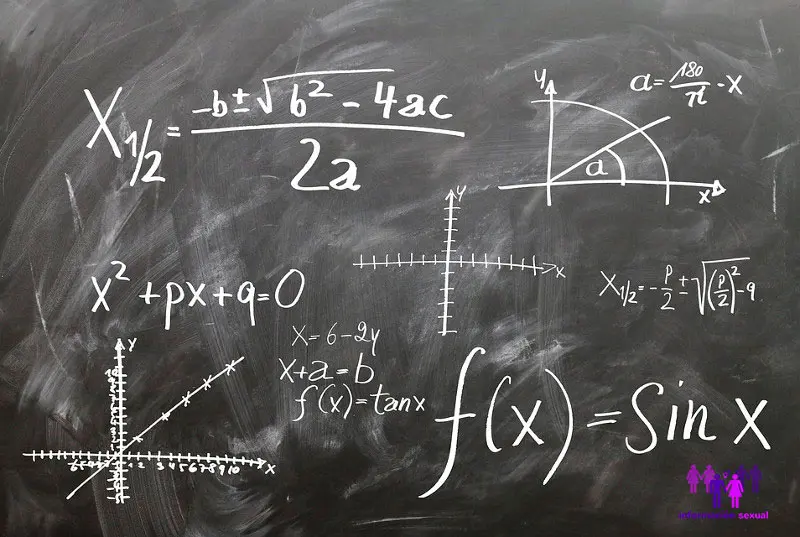 X₁/₂ = (-b ± √(b² - 4ac)) / 2a
y
a = 180/π · x
a
x
y
x
x² + px + q = 0
X₁/₂ = -p/2 ± √((p/2)² - q)
x = 6 - 2y
x + a = b
f(x) = tan x
f(x) = Sin x
y
x
sexual